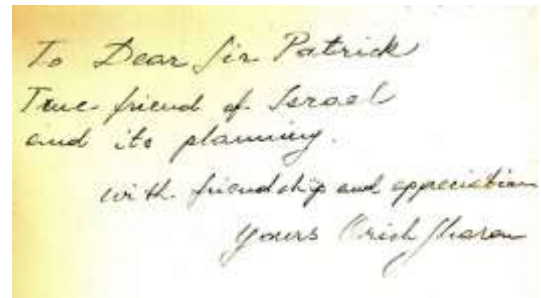 To Dear Sir Patrick
True friend of Israel
and its planning.
with friendship and appreciation
Yours Arieh Sharon